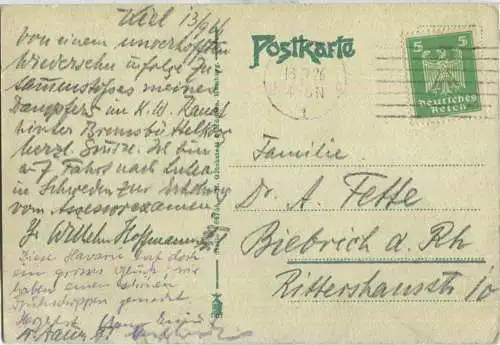 Kiel 13/9 26
von einem unverhofften
Wiedersehn infolge Zu
sammenstosses meines
Dampfers im K.W. Kanal
hinter Brunsbüttelkoog
herzl. Grüsse. Ich bin
auf Fahrt nach Lulea
in Schweden zur Erholung
vom Assessorexamen.
Ihr Wilhelm Hoffmann
Diese Havarie hat doch
ein grosses Glück; wir
haben einen schönen
Frühschoppen gemacht.
Postkarte
13.9.26
4-5 N
5 5
Deutsches
Reich
Familie
Dr. A. Fette
Biebrich a. Rh
Rittershausstr. 10